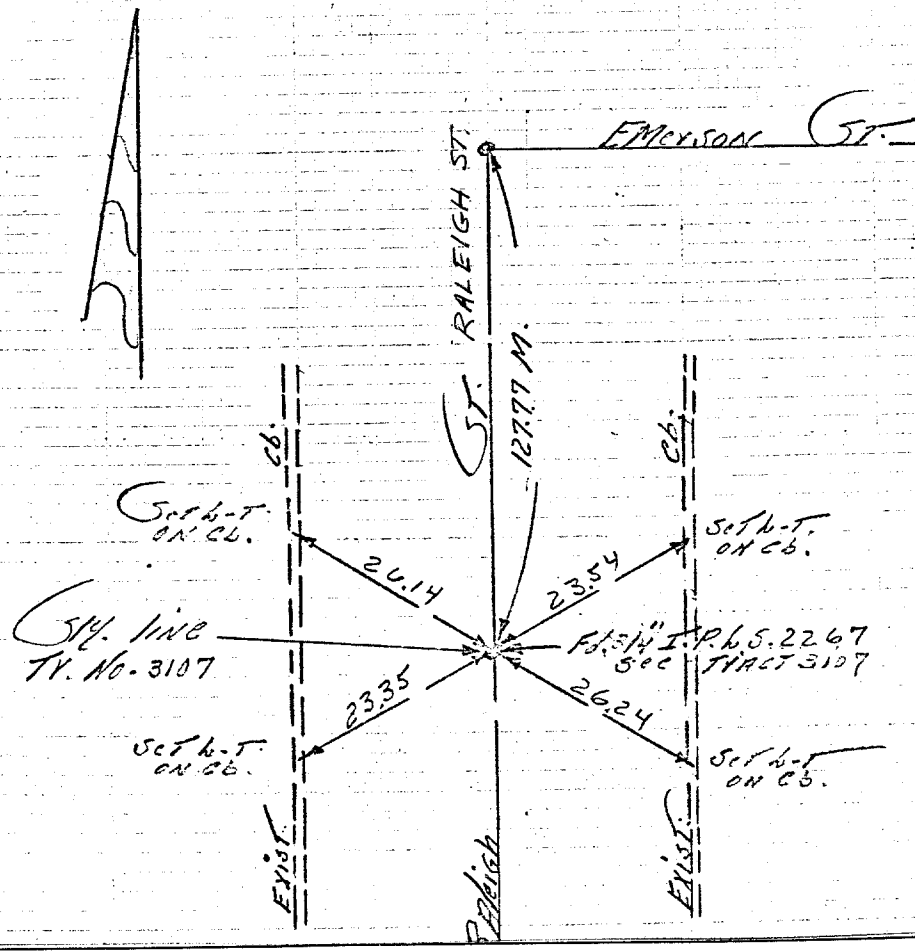 EMERSON ST.
ST. RALEIGH ST.
127.77 M.
Cb.
Cb.
Set L-T.
ON Cb.
Set L-T.
ON Cb.
26.14
23.54
Sly. line
Tr. No. 3107
Fd. 3/4" I.P. L.S. 2267
See Tract 3107
23.35
26.24
Set L-T.
ON Cb.
Set L-T
ON Cb.
Exist.
Raleigh
Exist.